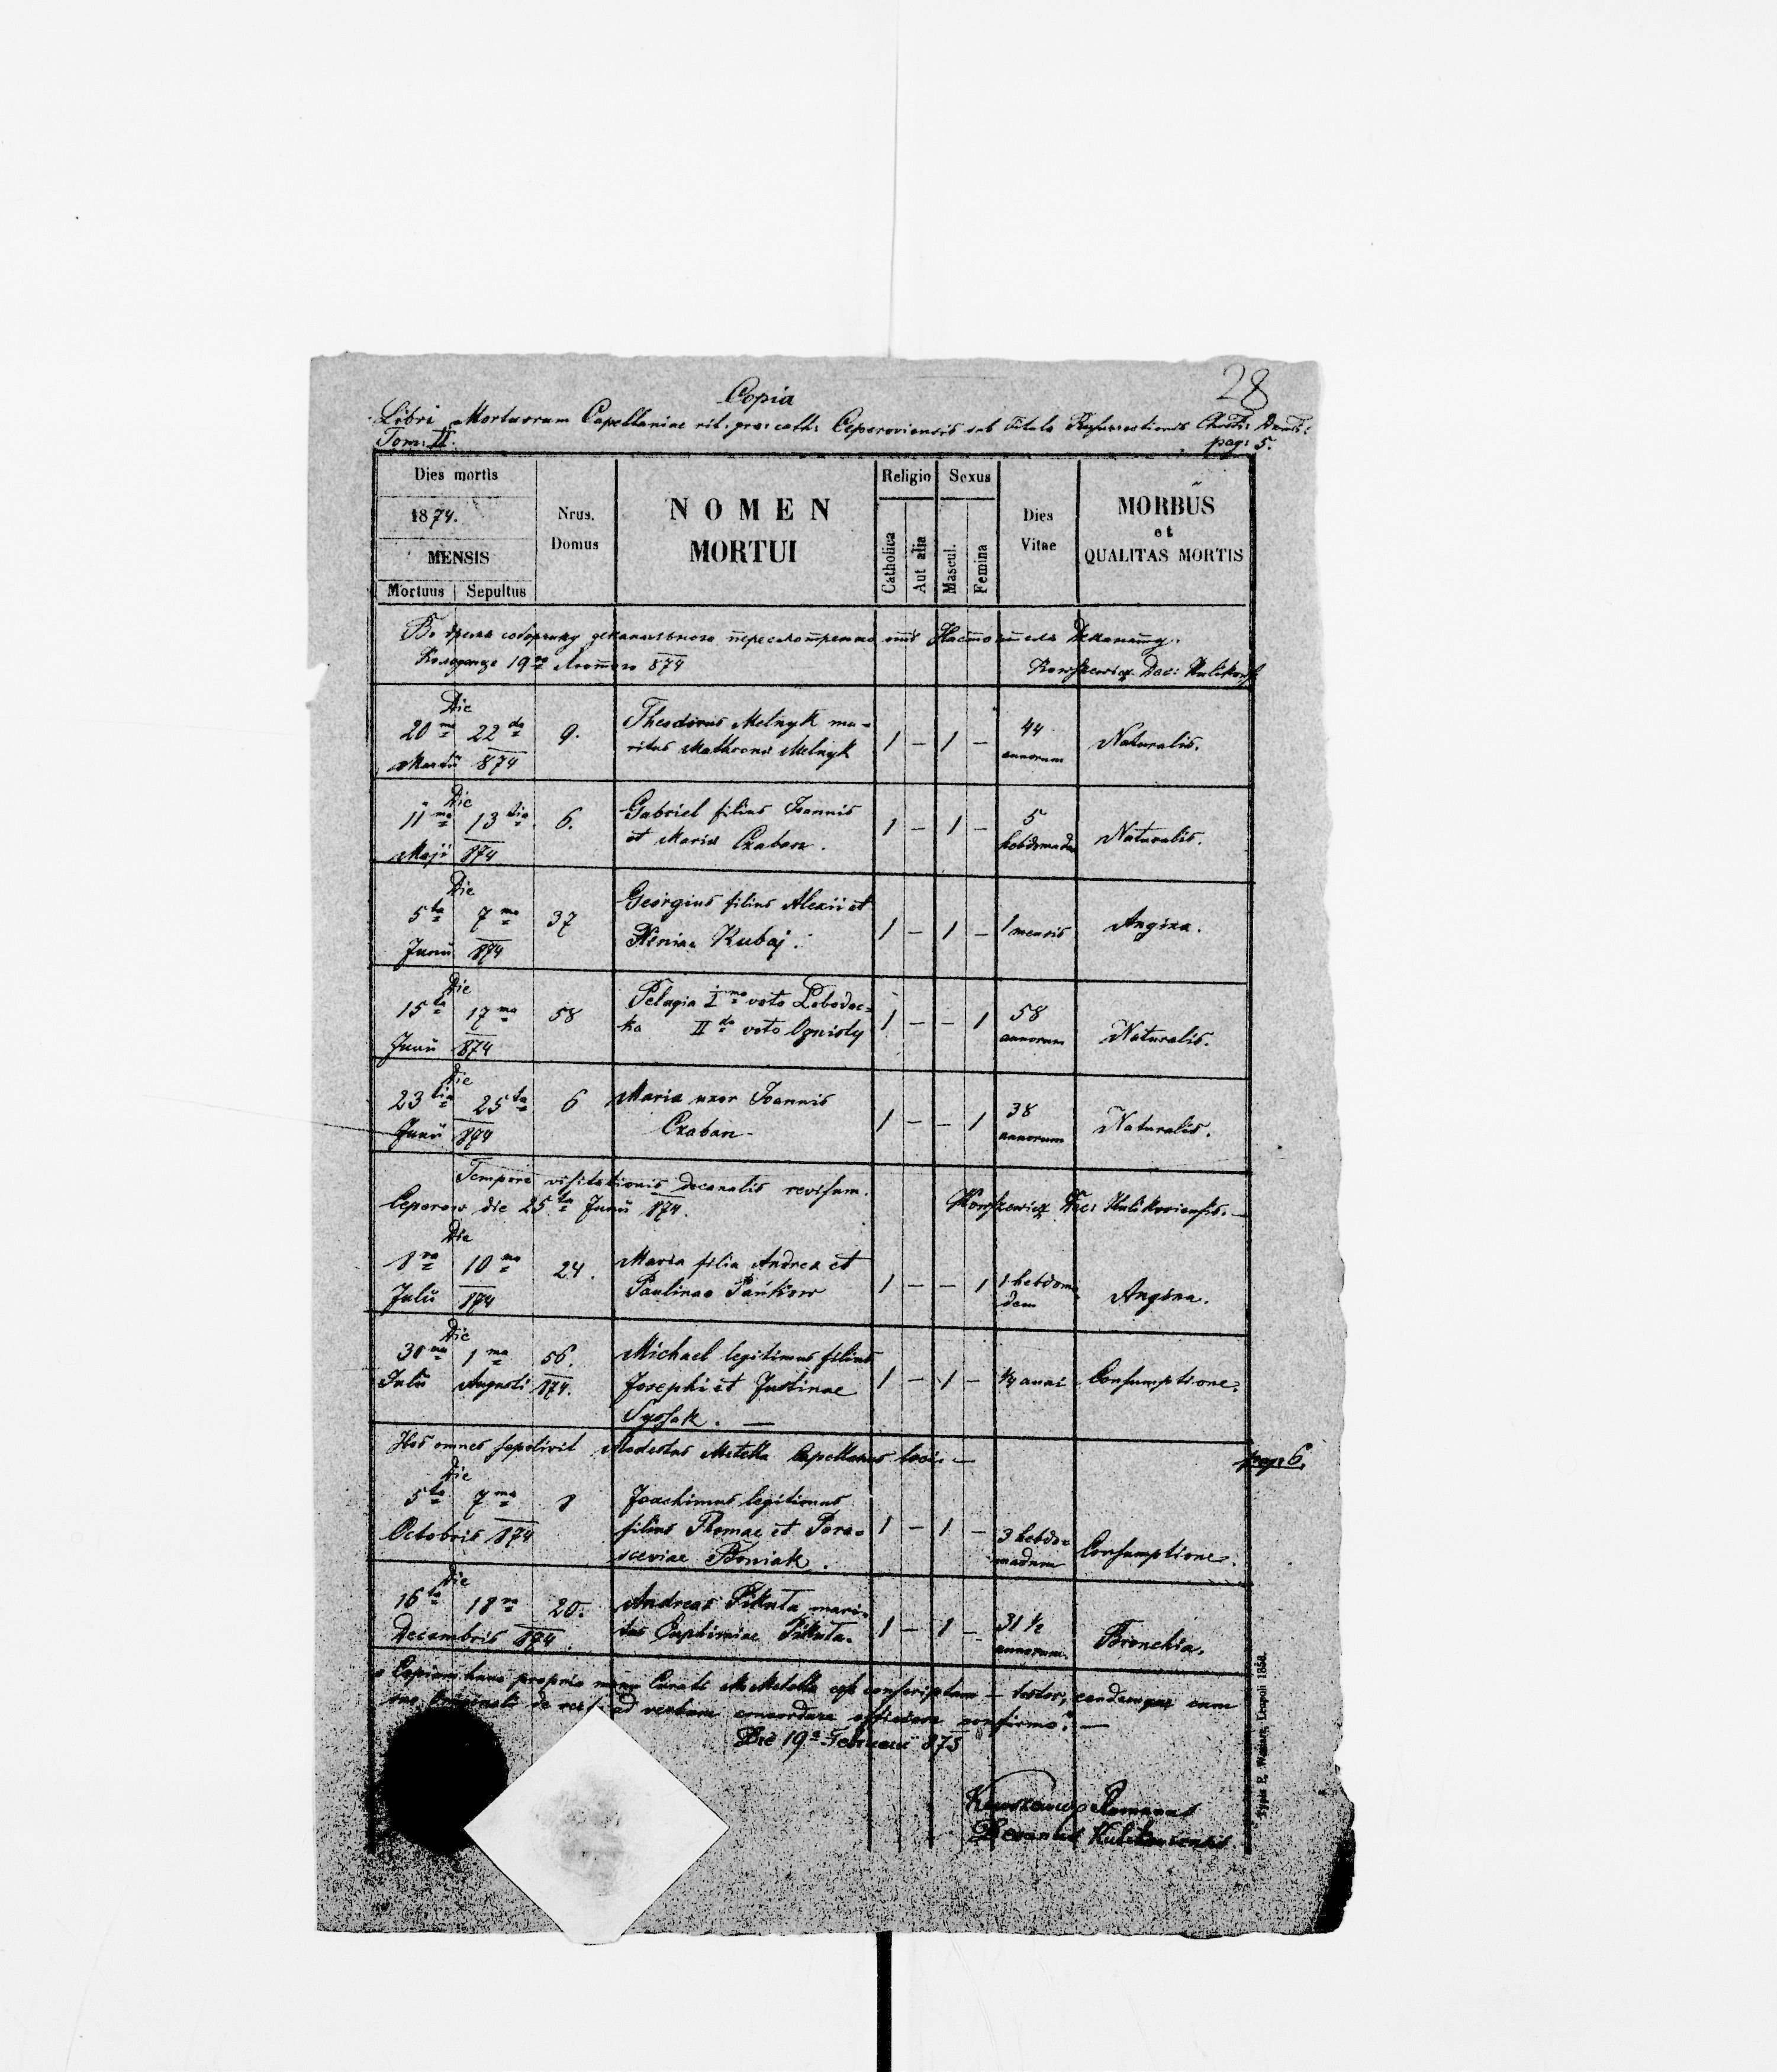 28
Copia
Libri Mortuorum Capellaniae rit. gr. cath: Ceperoviensis sub Titulo Resurrectionis Christi Domi:
Tom: II. pag: 5.
Dies mortis
1874.
MENSIS
Mortuus Sepultus
Nrus. Domus
NOMEN MORTUI
Religio
Catholica Aut alia
Sexus
Mascul. Femina
Dies Vitae
MORBUS et QUALITAS MORTIS
19го 874
Dec:
Die
20ma 22da 9. Theodorus Melnyk ma- 1 – 1 – 44 Naturalis.
Martii 874 ritus Mathronae Melnyk annorum
Die
11ma 13tia 6. Gabriel filius Joannis 1 – 1 – 5 Naturalis.
Maji 874 et Mariae Czaban. hebdmadas
Die
5ta 7ma 37 Georgius filius Alexii et 1 – 1 – 1 mensis Angina.
Junii 874 Xeniae Kubaj.
Die
15ta 17ma 58 Pelagia Imo voto Lobodec= 1 – – 1 58 Naturalis.
Junii 874 ka IIdo voto Ognisty annorum
Die
23tia 25ta 6 Maria uxor Joannis 1 – – 1 38 Naturalis.
Junii 874 Czaban annorum
Tempore visitationis decanalis revisum.
Ceperow die 25ta Junii 874. Dec: Kulikoviensis.–
Die
8va 10ma 24. Maria filia Andreae et 1 – – 1 1 hebdom Angina.
Julii 874 Paulinae Pańkow dem
Die
30ma 1ma 56. Michael legitimus filius 1 – 1 – ¼ anni Consumptione.
Julii Augusti 874. Josephi et Justinae
Syssak. —
Hos omnes sepelivit Modestus Metella Capellanus loci. — pag: 6.
Die
5ta 7ma 8 Joachimus legitimus 1 – 1 – 3 hebdo= Consumptione.
Octobris 874 filius Thomae et Para- madum
sceviae Boniak.
Die
16ta 18va 20. Andreas Pikuta mari- 1 – 1 – 31 ½ Bronchia.
Decembris 874. tus Euphimiae Pikuta. annorum.
Copiam hanc propria manu Curati M. Metella esse conscriptam — testor, eandemque cum
suo Originali de verbo ad verbum concordare officiose confirmo. —
Die 19a Februarii 875
Romanus
Decanus Kulikoviensis
Typis E. Winiarz, Leopoli 1858.